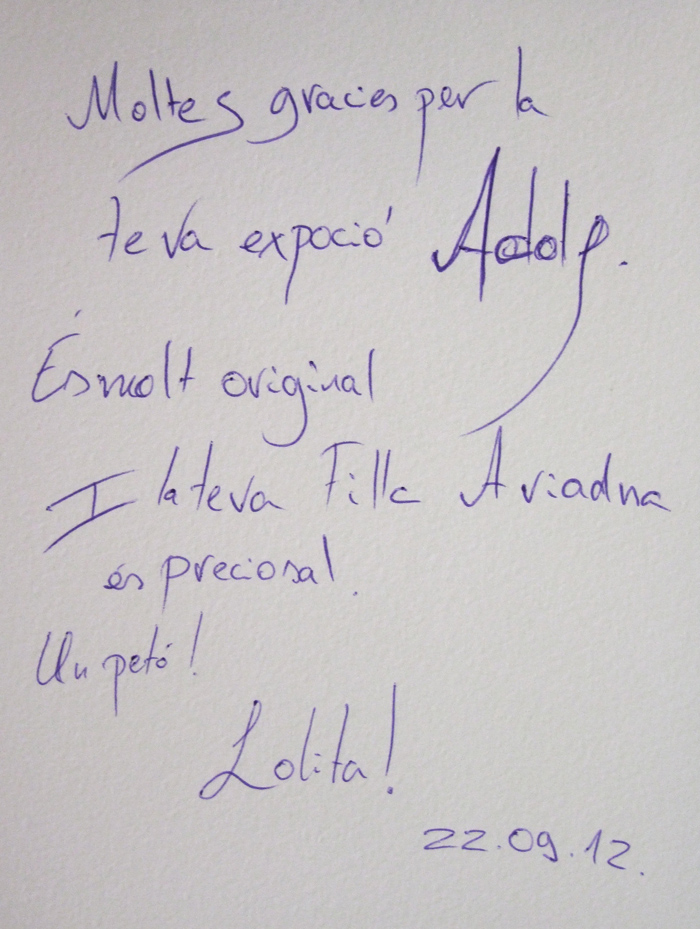 Moltes gracies per la
teva expoció Adolf.
És molt original
I la teva Filla Ariadna
és preciosa!
Un petó!
Lolita!
22.09.12.